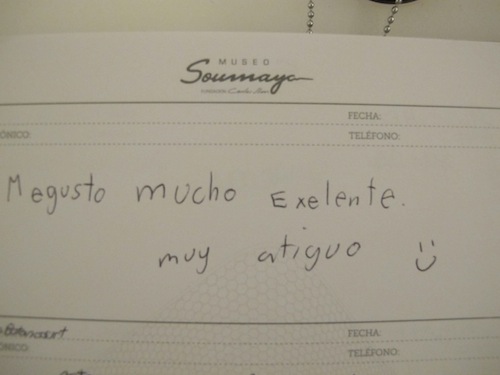 MUSEO
Soumaya
FUNDACIÓN Carlos Slim
FECHA:
ÓNICO:
TELÉFONO:
Megusto mucho Exelente.
muy atiguo
Betancourt
FECHA:
ÓNICO:
TELÉFONO: